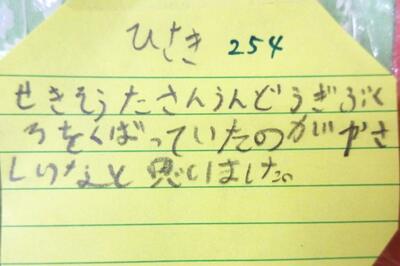 ひさき 254
せきそうたさんうんどうぎぶく
ろをくばっていたのがやさ
しいなと思いました。